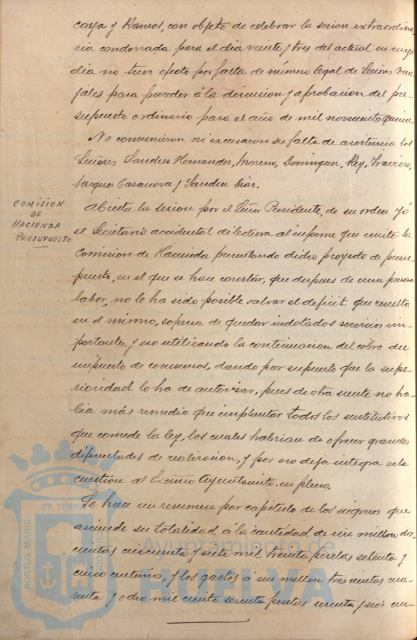 caya y Ramos, con objeto de celebrar la sesion extraordina-
ria condonada para el dia veinte y tres del actual en cuyo
dia no tuvo efecto por falta de número legal de Señores Conce-
jales para proceder á la discusion y aprobacion del pre-
supuesto ordinario para el año de mil novecientos quince.
No concurrieron ni excusaron su falta de asistencia los
Señores Sanchez Hernandez, Moreno, Dominguez, Rey,
Vazquez Casanova y Sanchez Diaz.
COMISION
DE
HACIENDA
PRESUPUESTO
Abierta la sesion por el Señor Presidente, de su orden dió
el Secretario accidental de lectura al informe que emite la
Comision de Hacienda presentando dicho proyecto de presu-
puesto, en el que se hace constar, que despues de una penosa
labor, no le ha sido posible salvar el deficit que resulta
en el mismo, sopena de quedar indotados servicios im-
portantes, y eso utilizando la continuacion del cobro del
impuesto de consumos, dando por supuesto que la supe-
rioridad lo ha de autorizar, pues de otra suerte no ha-
bia más remedio que implantar todos los sustitutivos
que concede la ley, los cuales habrian de ofrecer grandes
dificultades de realizacion, y por eso deja integra esta
cuestion al Excmo Ayuntamiento en pleno.
Se hace un resumen por capitulos de los ingresos que
asciende su totalidad á la cantidad de un millon dos-
cientos cincuenta y siete mil treinta pesetas setenta y
cinco centimos, y los gastos á un millon trescientos cua-
renta y ocho mil ciento sesenta pesetas noventa y seis cen-
PORTUS MARIS ET TERRAE
HUELVA